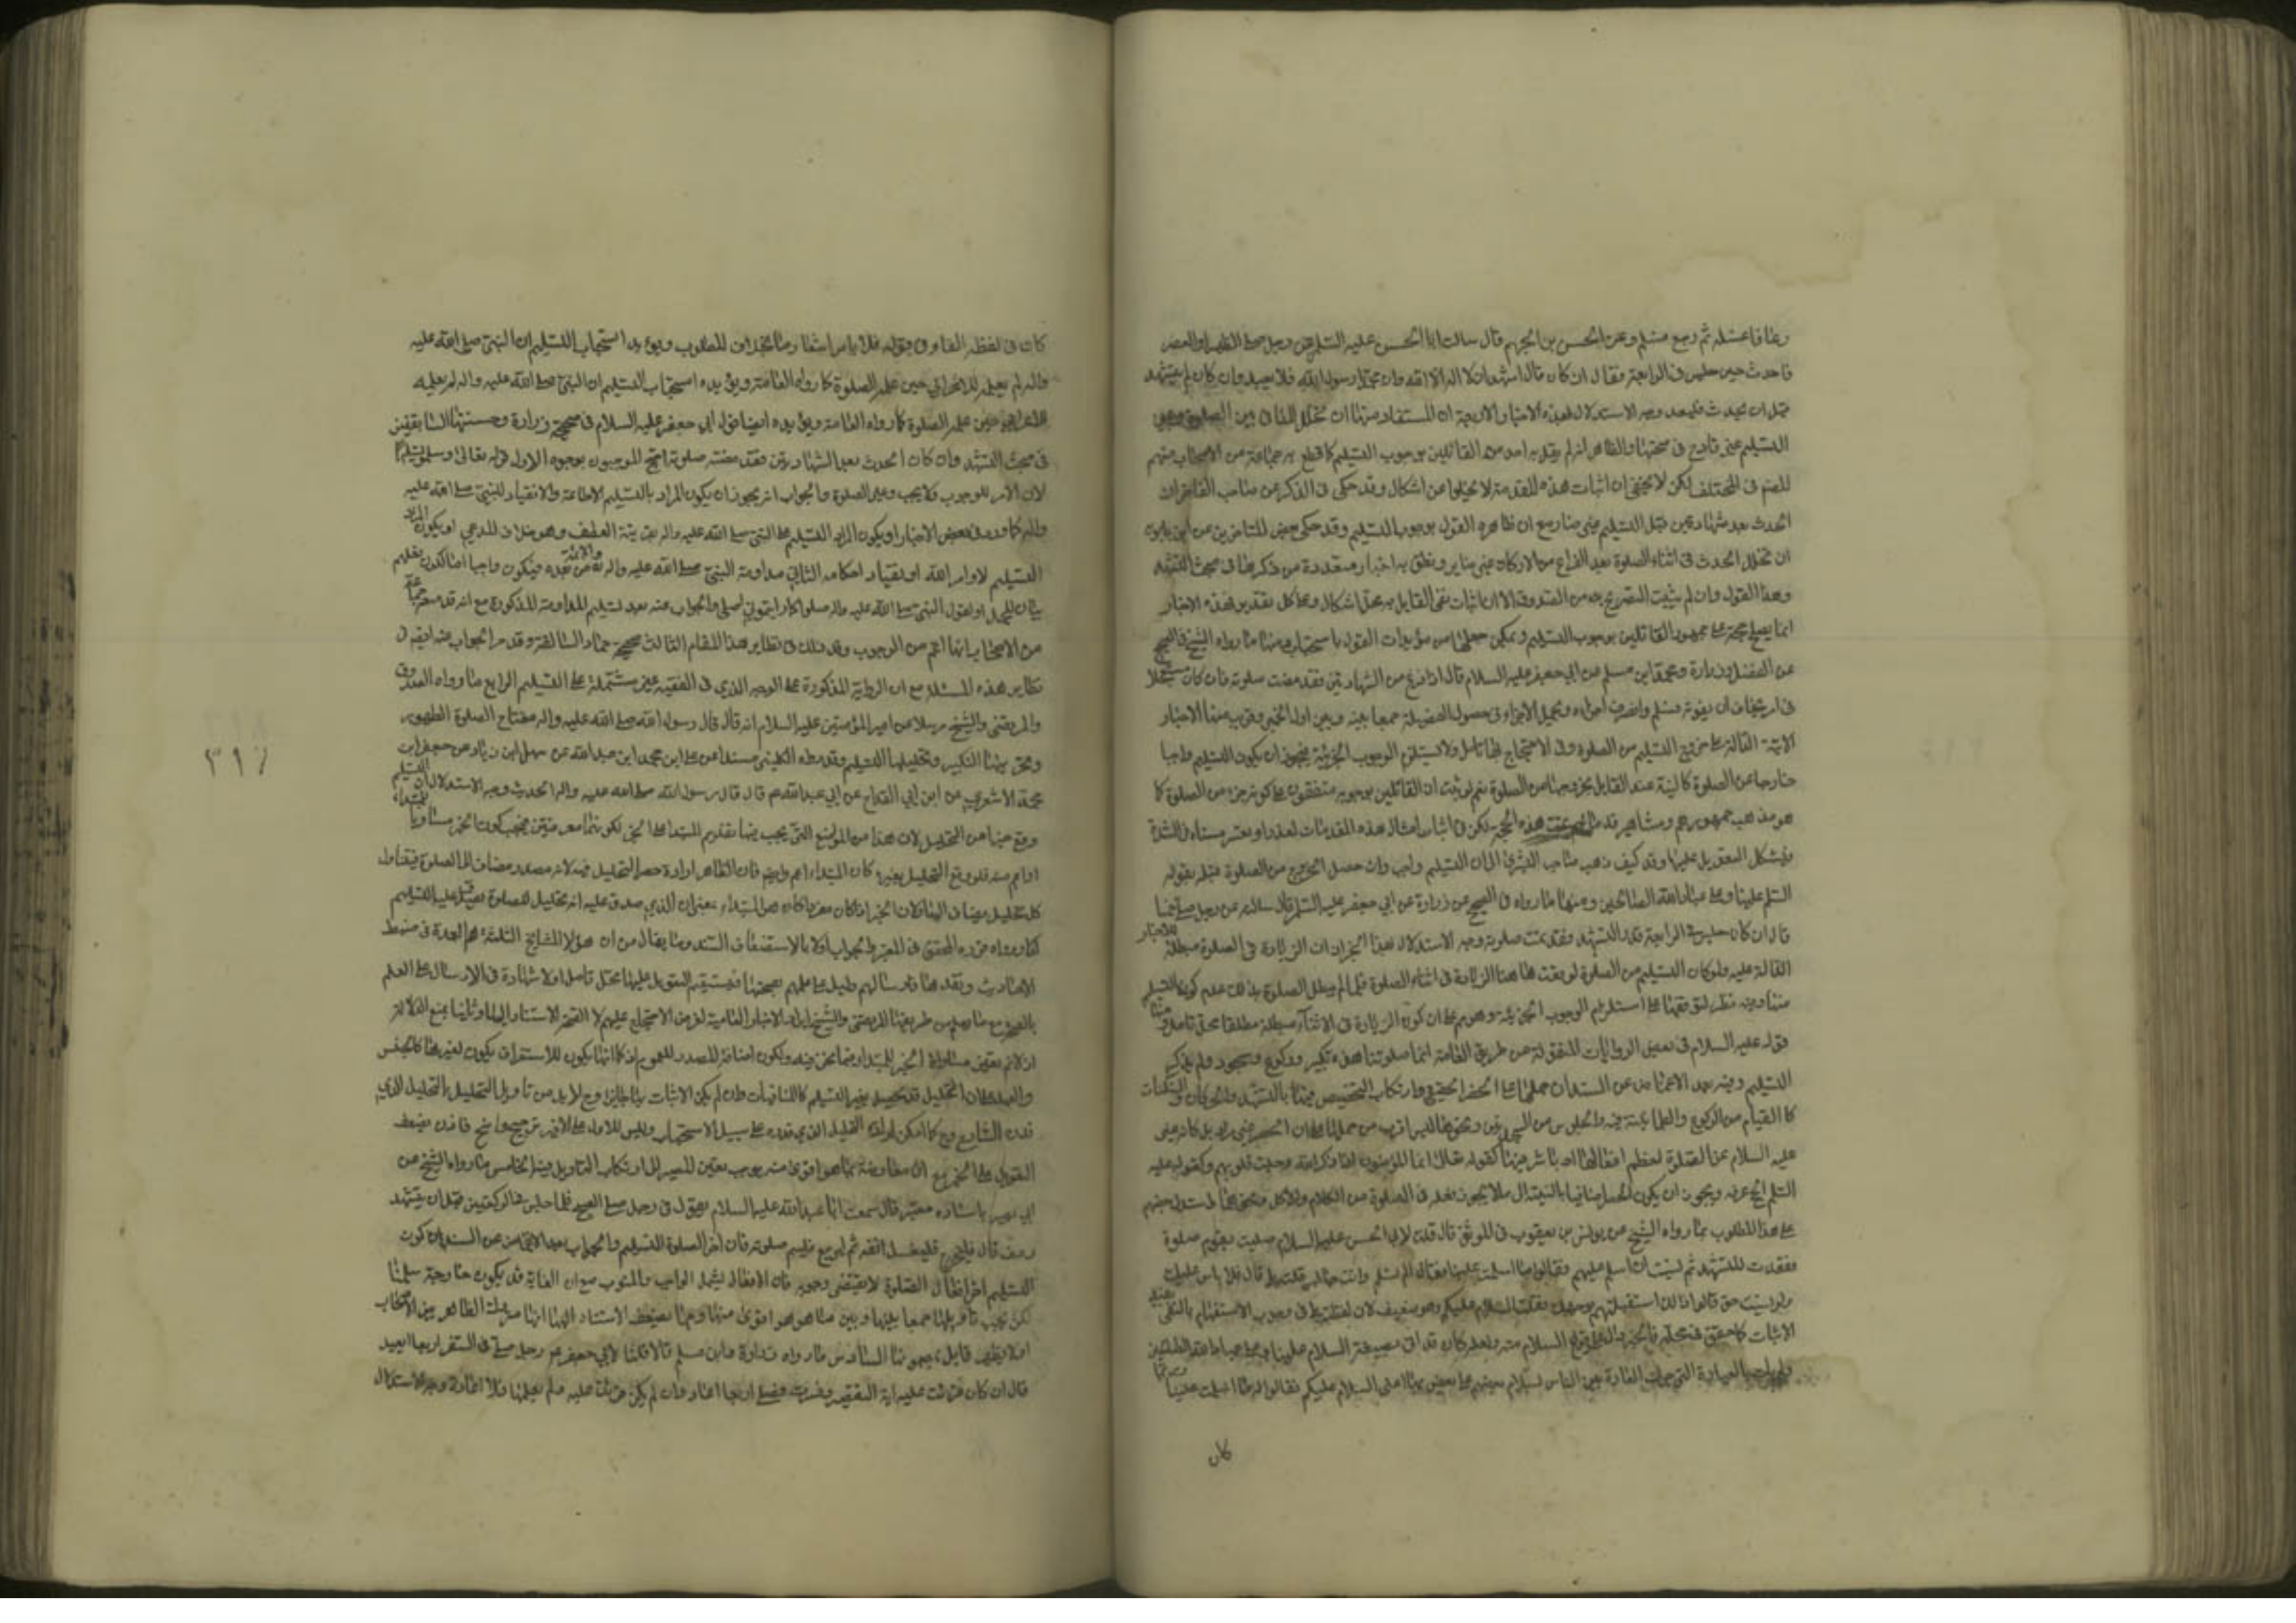 رعافا فاغسله ثم ارجع فسلم وعن الحسن بن الجهم قال سالت ابا الحسن عليه السلم عن رجل صلى الظهر او العصر
فاحدث حين جلس في الرابعة فقال ان كان قال اشهد ان لا اله الا الله وان محمدا رسول الله فلا يعيد وان كان لم يتشهد
قبل ان يحدث فليعد وجه الاستدلال بهذه الاخبار الاربعة ان المستفاد منها ان تخلل المنافي بين الصلوة وبين
التسليم غير قادح في صحتها والظاهر انه لم يقل به احد من القائلين بوجوب التسليم كما قطع به جماعة من الاصحاب منهم
المصم في المختلف لكن لا يخفى ان اثبات هذه المقدمة لا يخلوا من اشكال وقد حكى في الذكرى عن صاحب الفاخر ان
الحدث بعد شهادتين قبل التسليم غير ضار مع ان ظاهره القول بوجوب التسليم وقد حكى بعض المتاخرين عن ابن بابويه
ان تخلل الحدث في اثناء الصلوة بعد الفراغ من الاركان غير ضاير ونطق به اخبار متعددة مر ذكرها في مبحث التشهد
وهذا القول وان لم يثبت التصريح به من الصدوق الا ان اثبات نفى القايل به محل اشكال وعلى كل تقدير لهذه الاخبار
انما يصلح حجة على جمهور القائلين بوجوب التسليم ويمكن جعلها من مؤيدات القول باستحبابه ومنها ما رواه الشيخ في الصحيح
عن الفضيل وزرارة ومحمد ابن مسلم عن ابي جعفر عليه السلام قال اذا فرغ من الشهادتين فقد مضت صلوته فان كان مستعجلا
في امر يخاف ان يفوته فسلم وانصرف اجزاه ويحمل الاجزاء في حصول الفضيلة جمعا بينه وبين اول الخبر ويقرب منها الاخبار
الاتية الدالة على خروج التسليم من الصلوة وفي الاحتجاج بها تامل ولا يستلزم الوجوب الجزئية فيجوز ان يكون التسليم واجبا
خارجا عن الصلوة كالنية عند القايل بخروجها من الصلوة نعم لو ثبت ان القائلين بوجوبه متفقون على كونه جزء من الصلوة كما
هو مذهب جمهورهم ومشاهيرهم هذه الحجة لكن في اثبات امثال هذه المقدمات تعذرا او تعسر
فيشكل التعويل عليها وقد كيف ذهب صاحب البشرى الى ان التسليم واجب وان حصل الخروج من الصلوة قبله بقوله
السلم علينا وعلى عباد الله الصالحين ومنها ما رواه في الصحيح عن زرارة عن ابي جعفر عليه السلم قال سالته عن رجل صلى خمسا
قال ان كان جلس في الرابعة قدر التشهد فقد تمت صلوته وجه الاستدلال بهذا الخبر ان الزيادة في الصلوة مبطلة للاخبار
الدالة عليه ولو كان التسليم من الصلوة لوقعت هاهنا الزيادة في اثناء الصلوة فلما لم يبطل الصلوة بذلك علم كون التسليم
وفيه نظر لتوقفها على استلزام الوجوب الجزئية وهو م على ان كون الزيادة في الاثناء مبطلة مطلقا محل تامل ومنها
قوله عليه السلام في بعض الروايات المنقولة من طريق العامة انما صلوتنا هذه تكبير وركوع وسجود ولم يذكر
التسليم وفيه بعد الاغماض عن السند ان حملها على الحصر الحقيقي وارتكاب التخصيص فيها بالتشهد والحركات والسكنات
كالقيام من الركوع والطمانينة فيه والجلوس من السجدتين ونحوها ليس اقرب من حملها على ان الحصر غير مراد بل كانه عرف
عليه السلام عن الصلوة لمعظم افعالها او باشرفها كقوله تعالى انما المؤمنون الذين اذا ذكر الله وجلت قلوبهم وكقوله عليه
السلم الحج عرفة ويجوز ان يكون الحصر اضافيا بالنسبة الى ما لا يجوز فعله في الصلوة من الكلام والاكل ونحوهما استدل بعضهم
على هذا المطلوب بما رواه الشيخ عن يونس بن يعقوب في الموثق قال قلت لابي الحسن عليه السلام صليت بقوم صلوة
فقعدت للتشهد ثم نسيت ان اسلم عليهم فقالوا ما سلمت علينا فقال الم تسلم وانت جالس قلت بلى قال فلا باس عليك
ولو نسيت حتى قالوا لك ذلك استقبلتهم بوجهك فقلت السلام عليكم وهو ضعيف لان لفظة بلى في وجوب الاستفهام بالنفى يفيد
الاثبات كما حقق في محله فالخبر دال على وقوع السلام منه ولعله كان قد اتى بصيغة السلام علينا وعلى عباد الله الصالحين
العبادة التي جرت العادة بين الناس لسلام بعضهم على بعض بها اعنى السلام عليكم فقالوا له ما سلمت علينا
كان
كان في لفظه الفاء في قوله فلا باس اشعارا بما يخالف للمطلوب ويؤيد استحباب التسليم ان النبي صلى الله عليه
واله لم يعلمه للاعرابي حين علمه الصلوة كما رواه العامة ويؤيده استحباب التسليم ان النبي صلى الله عليه واله لم يعلمه
للاعرابي حين علمه الصلوة كما رواه العامة ويؤيده ايضا قول ابي جعفر عليه السلام في صحيحة زرارة وحسنتها السابقتين
في مبحث التشهد وان كان الحدث بعد الشهادتين فقد مضت صلوته احتج الموجبون بوجوه الاول قوله تعالى وسلموا تسليما
لان الامر للوجوب ولا يجب في غير الصلوة والجواب انه يجوز ان يكون المراد بالتسليم الاطاعة والانقياد للنبي صلى الله عليه
واله كما ورد في بعض الاخبار او يكون المراد التسليم على النبي صلى الله عليه واله بقرينة العطف وهو خلاف المدعى او يكون المراد
التسليم لاوامر الله او نقياد احكامه الثاني مداومة النبي صلى الله عليه واله والائمة من بعده فيكون واجبا اما لكون فعلهم
بيان للمجمل او لقول النبي صلى الله عليه واله صلوا كما رايتموني اصلي والجواب عنه بعد تسليم المداومة المذكورة مع انه قد صرح جماعة
من الاصحاب بانها اعم من الوجوب وقد ذلك في نظاير هذا المقام الثالث صحيحة حماد السالفة وقد مر الجواب عنه ايضا في
نظاير هذه المسئلة مع ان الرواية المذكورة على الوجه الذي في الفقيه غير مشتملة على التسليم الرابع ما رواه الصدوق
والمرتضى والشيخ مرسلا عن امير المؤمنين عليه السلام انه قال قال رسول الله صلى الله عليه واله مفتاح الصلوة الطهور
وتحريمها التكبير وتحليلها التسليم وقد رواه الكليني مسندا عن علي ابن محمد ابن عبد الله عن سهل ابن زياد عن جعفر ابن
محمد الاشعري عن ابن القداح عن ابي عبد الله ع قال قال رسول الله صلى الله عليه واله الحديث وجه الاستدلال ان التسليم
وقع خبرا عن التحليل لان هذا من المواضع التي يجب فيها تقديم المبتدا على الخبر لكونهما معرفتين فيجب كون الخبر مساويا للمبتداء
او اعم منه فلو وقع التحليل بغيره كان المبتداء اعم وايضا فان الظاهر ارادة حصر التحليل فيه لانه مصدر مضاف الى الصلوة فيتناول
كل تحليل يضاف اليها ولان الخبر اذا كان مفردا كان هو المبتداء بمعنى ان الذي صدق عليه انه تحليل للصلوة يصدق عليه التسليم
كذا رواه قرره المحقق في المعتبر والجواب اولا بالاستضعاف السند وما يقال من ان هؤلاء المشايخ الثلثة هم العمدة في ضبط
الاحاديث ونقدها فارسالهم دليل على علمهم بصحتها فيستقيم التعويل عليها محل تامل اذ لا شهادة في الارسال على العلم
بالصحة مع ما وصل من طريقة المرتضى والشيخ ايراد الاخبار العامية لغرض الاحتجاج عليهم لا لقصد الاستناد اليها وثانيا بمنع الدلالة
اذ لا نم تعين مساواة الخبر للمبتدا فيما نحن فيه ولكون اضافة المصدر للعموم اذ كما انها يكون للاستغراق يكون لغيره كالجنس
والعهد على ان التحليل قد يحصل بغير التسليم كالمنافيات وان لم يكن الاتيان بها جايزا وح لا بد من تاويل التحليل بالتحليل الذي
قدره الشارع وح كما امكن ارادة التحليل الذي قدره على سبيل الاستحباب وليس للاول على الاخير ترجيح واضح
التعويل على الخبر مع ان معارضته بما هو اقوى منه يوجب تعين المصير الى ارتكاب التاويل فيه الخامس ما رواه الشيخ عن
ابي بصير باسناده معتبر قال سمعت ابا عبد الله عليه السلام يقول في رجل صلى الصبح فلما جلس في الركعتين قبل ان يتشهد
رعف قال فليخرج فليغسل انفه ثم ليرجع فليتم صلوته فان اخر الصلوة التسليم والجواب بعد الاغماض عن السند ان كون
التسليم اخر افعال الصلوة لا يقتضى وجوبه فان الافعال يشمل الواجب والمندوب مع ان الغاية قد يكون خارجة سلمنا
لكن يجب تاويلها جمعا بينها وبين ما هو اقوى منها ومما يضعف الاستناد اليها الظاهر بين الاصحاب
السادس ما رواه زرارة وابن مسلم قالا قلنا لابي جعفر ع رجل صلى في السفر اربعا ايعيد
قال ان كان قرئت عليه اية التقصير وفسرت فصلى اربعا اعاد وان لم يكن قرئت عليه ولم يعلمها فلا اعادة وجه الاستدلال
٣١٧